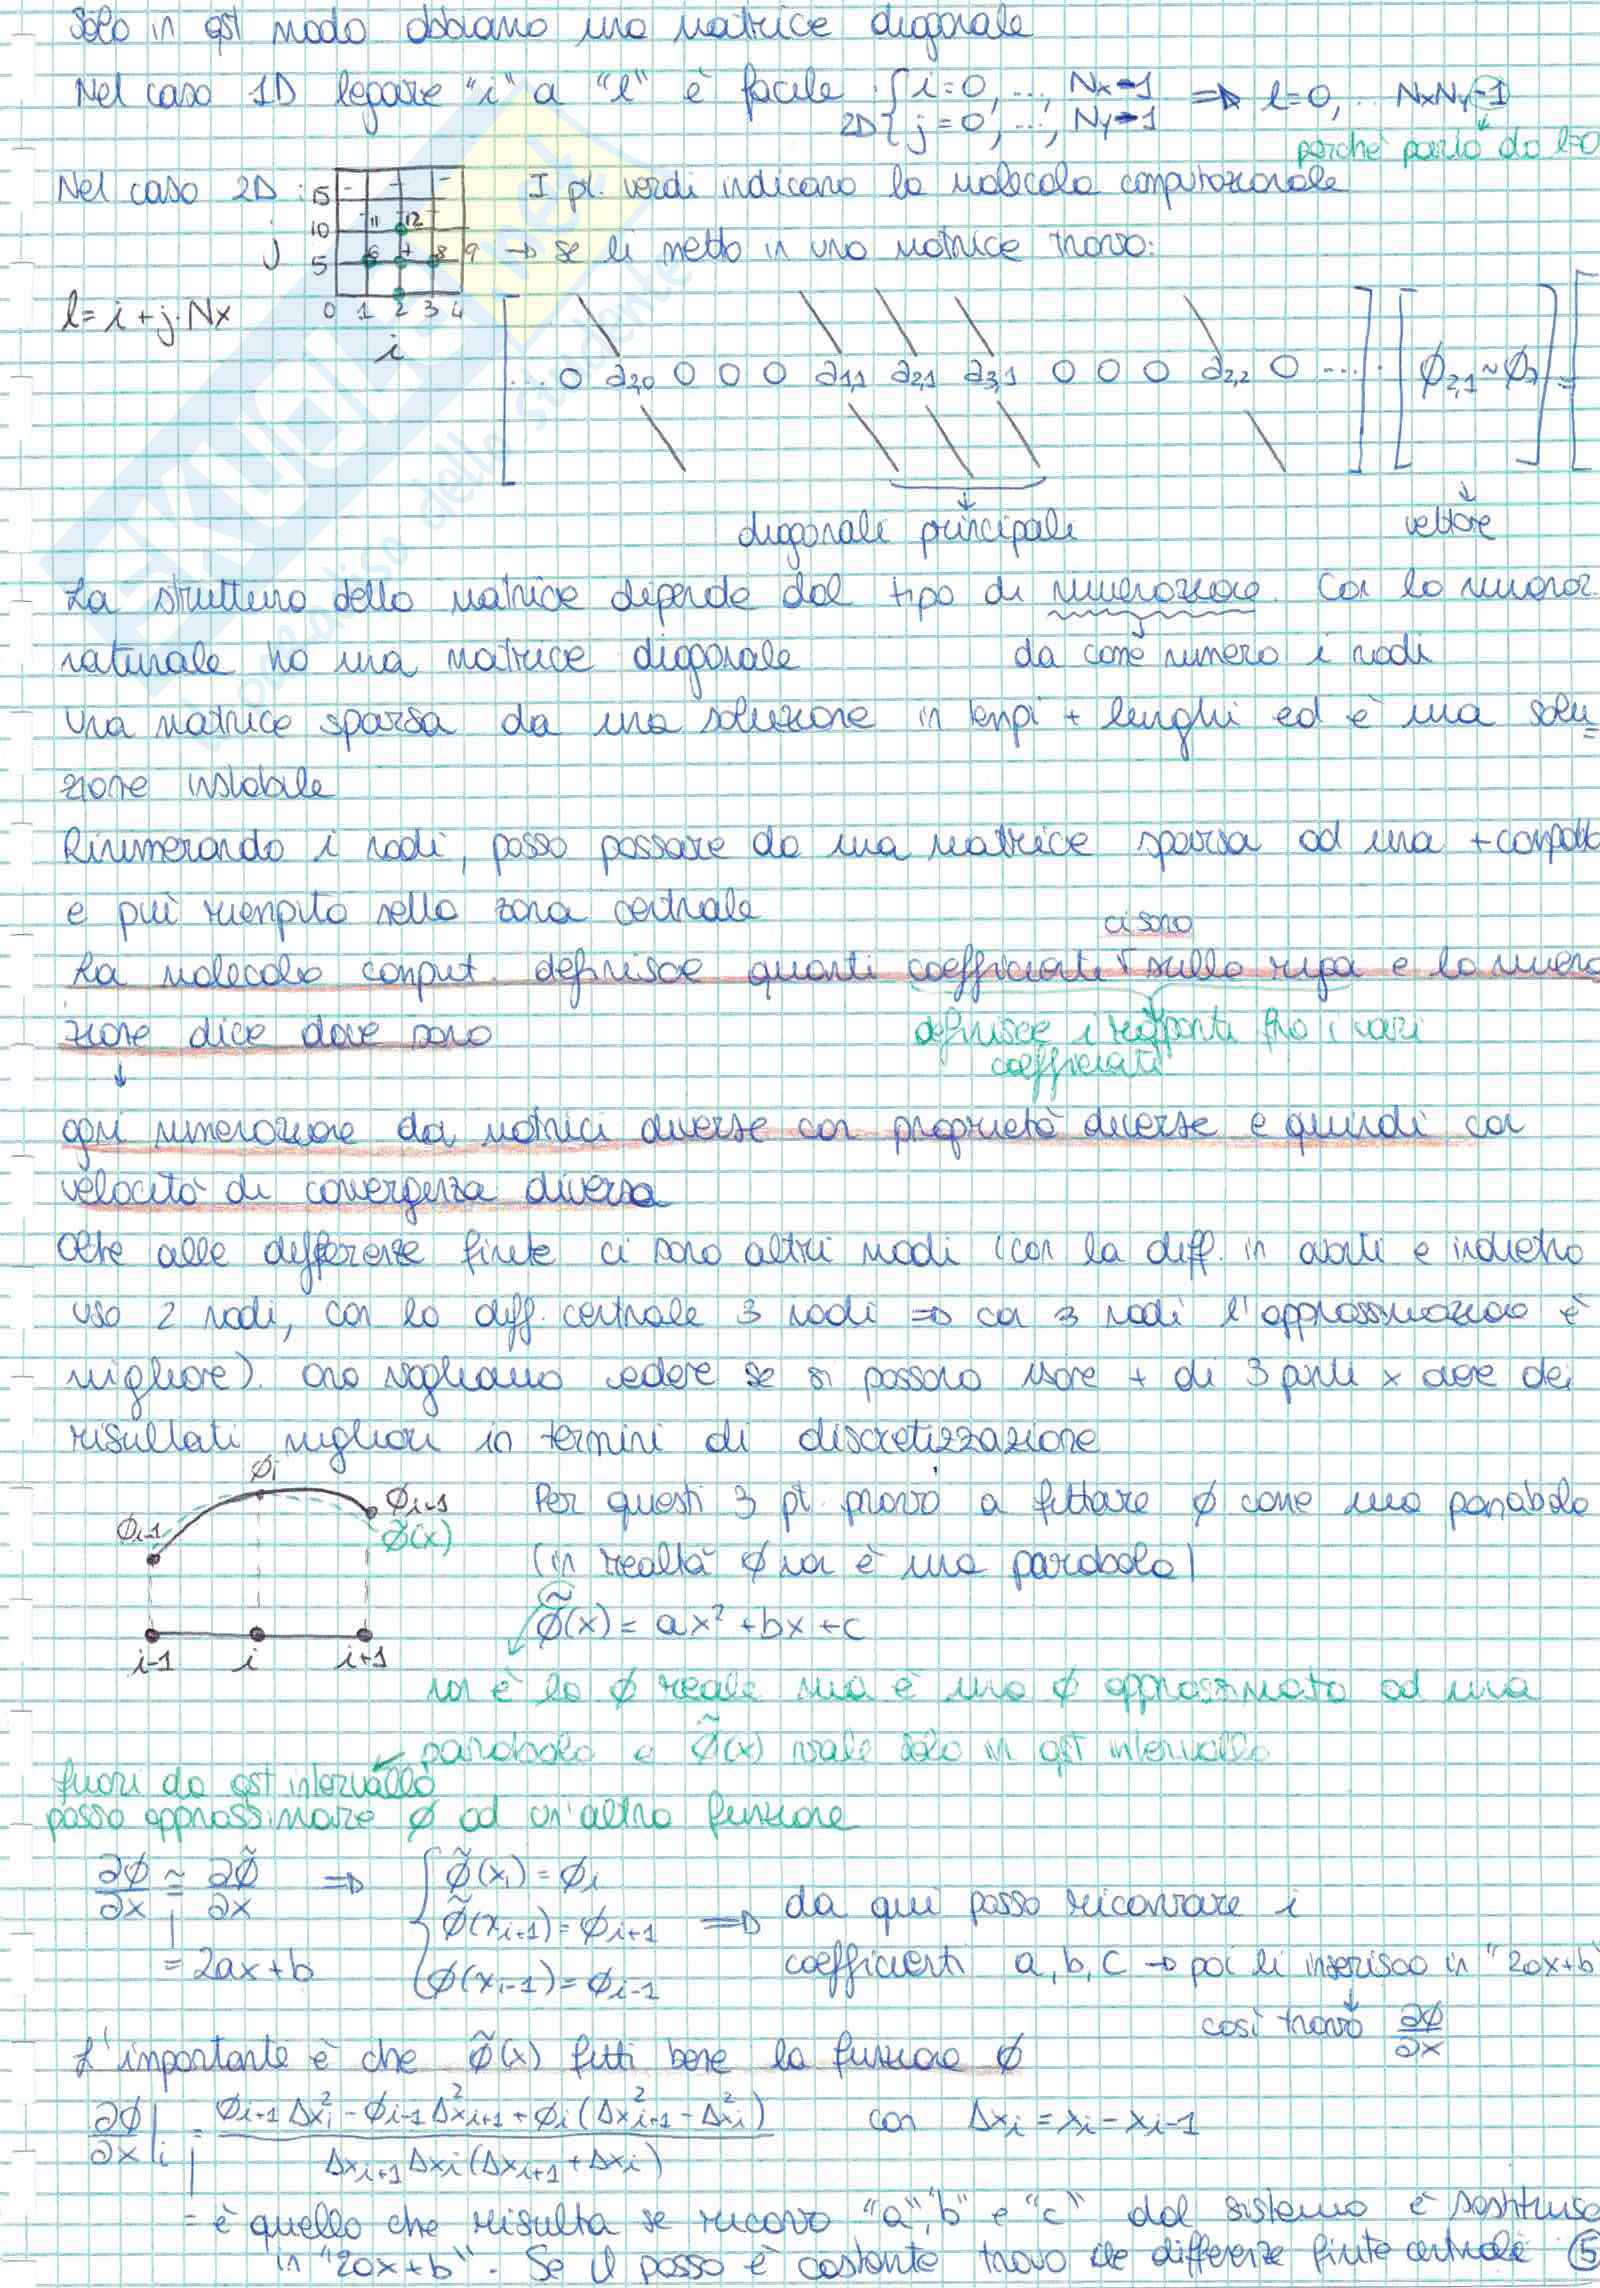 Solo in qst modo abbiamo una matrice diagonale
Nel caso 1D legare "i" a "l" è facile 2D { i=0, ..., Nx-1 => l=0, ... NxNy-1
j=0, ..., Ny-1
perchè parto da l=0
Nel caso 2D : 15 I pt. verdi indicano la molecola computazionale
10 11 12
j 5 6 7 8 9 → se li metto in una matrice trovo:
l= i+j·Nx 0 1 2 3 4
i
... 0 a2,0 0 0 0 a1,1 a2,1 a3,1 0 0 0 a2,2 0 ... · ϕ2,1 ~ ϕ7 =
diagonale principale vettore
La struttura della matrice dipende dal tipo di numerazione. Con la numeraz.
naturale ho una matrice diagonale da come numero i nodi
una matrice sparsa da una soluzione in tempi + lunghi ed è una solu
zione instabile
Rinumerando i nodi, posso passare da una matrice sparsa ad una + compatta
e più riempita nella zona centrale
ci sono
La molecola comput. definisce quanti coefficienti sulla riga e la numera
zione dice dove sono
definisce i rapporti fra i vari
coefficienti
↓
ogni numerazione da matrici diverse con proprietà diverse e quindi con
velocità di convergenza diversa
Oltre alle differenze finite ci sono altri modi (con la diff. in avanti e indietro
uso 2 nodi, con la diff. centrale 3 nodi => con 3 nodi l'approssimazione è
migliore). Ora vogliamo vedere se si possono usare + di 3 punti x avere dei
risultati migliori in termini di discretizzazione
ϕi
ϕi-1 ϕi+1 Per questi 3 pt. provo a fittare ϕ come una parabola
ϕ̃(x) (in realtà ϕ non è una parabola)
ϕ̃(x) = ax² + bx + c
i-1 i i+1
non è la ϕ reale ma è una ϕ approssimata ad una
parabola e ϕ̃(x) vale solo in qst intervallo
fuori da qst intervallo
posso approssimare ϕ ad un'altra funzione
∂ϕ/∂x ≃ ∂ϕ̃/∂x => { ϕ̃(xi) = ϕi
ϕ̃(xi+1) = ϕi+1 => da qui posso ricavare i
= 2ax+b ϕ(xi-1) = ϕi-1 coefficienti a, b, c → poi li inserisco in "2ax+b"
così trovo ∂ϕ/∂x
L'importante è che ϕ̃(x) fitti bene la funzione ϕ
∂ϕ/∂x|i = ϕi+1 Δxi² - ϕi-1 Δx²i+1 + ϕi (Δx²i+1 - Δx²i) / Δxi+1 Δxi (Δxi+1 + Δxi) con Δxi = xi - xi-1
= è quello che risulta se ricavo "a", "b" e "c" dal sistema e sostituisco
in "2ax+b". Se il passo è costante trovo le differenze finite centrali 5